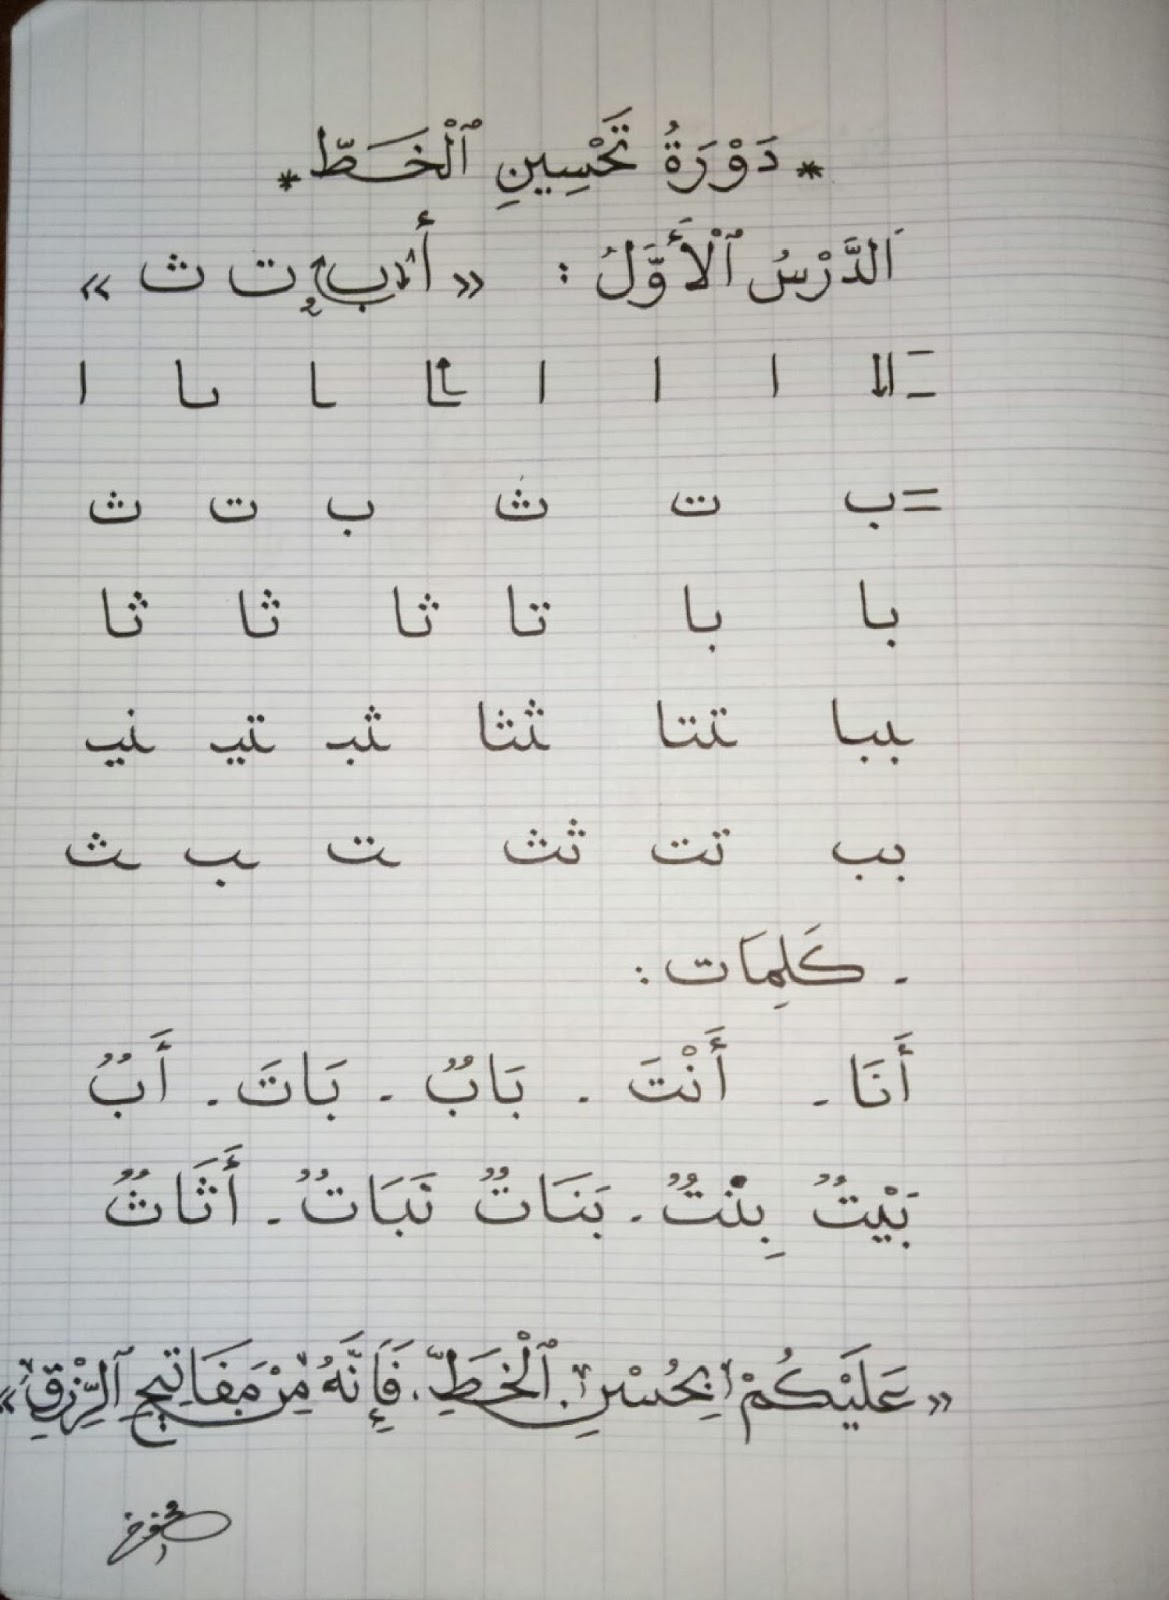 * دَوْرَةُ تَحْسِينِ ٱلْخَطّ *
اَلدَّرْسُ ٱلْأَوَّلُ : « أ ب ت ث »
ا ا ا ا ـا ـا ـا ا
= ب ت ث ب ت ث
با با تا ثا ثا ثا
ـببا ـتتا ـثثا
بب تت ثث ـت ـب ـث
. كَلِمَات :
أَنَا . أَنْتَ . بَابٌ . بَاتَ . أَبٌ
بَيْتٌ بِنْتٌ . بَنَاتٌ نَبَاتٌ . أَثَاثٌ
« عَلَيْكُمْ بِحُسْنِ ٱلْخَطِّ، فَإِنَّهُ مِنْ مَفَاتِيحِ ٱلرِّزْقِ »